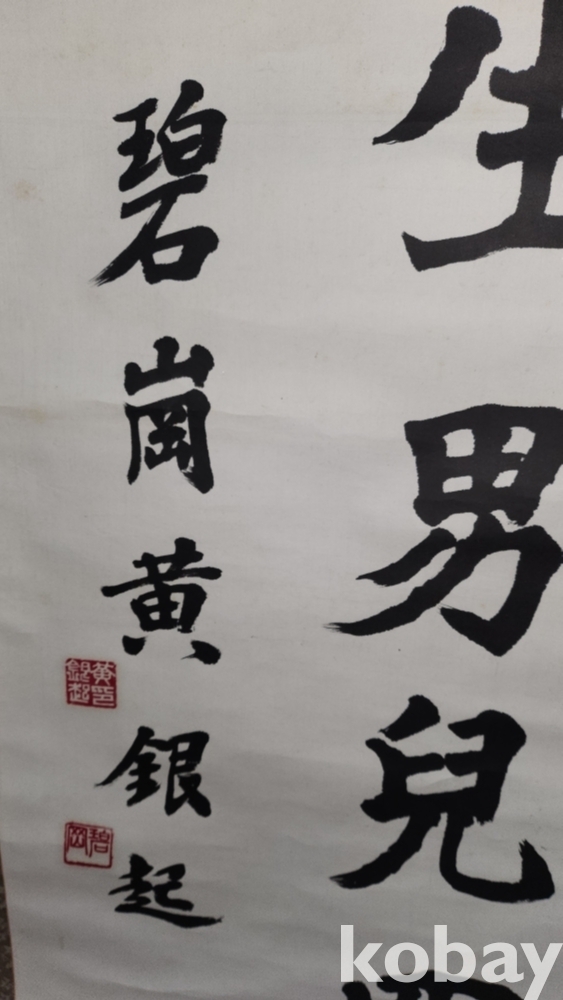 生男兒
碧崗黃銀起
黃銀起印
碧岡
kobay